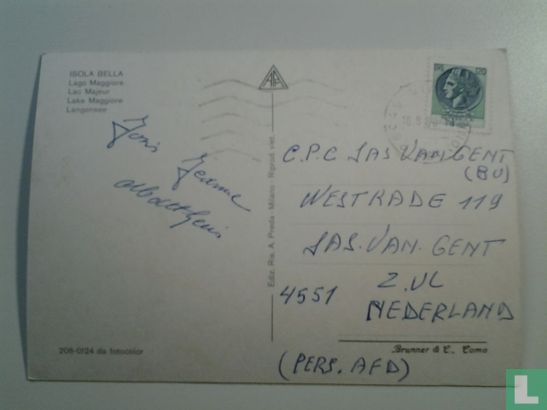 ISOLA BELLA
Lago Maggiore
Lac Majeur
Lake Maggiore
Langensee
Joris Jeanne
C.P.C SAS VAN GENT
(BU)
WESTKADE 119
SAS. VAN. GENT
4551 Z.VL
NEDERLAND
(PERS. AFD)
Ediz. Ris. A. Preda - Milano - Riprod. viet.
208-0124 da fotocolor
Brunner & C., Como
catawiki